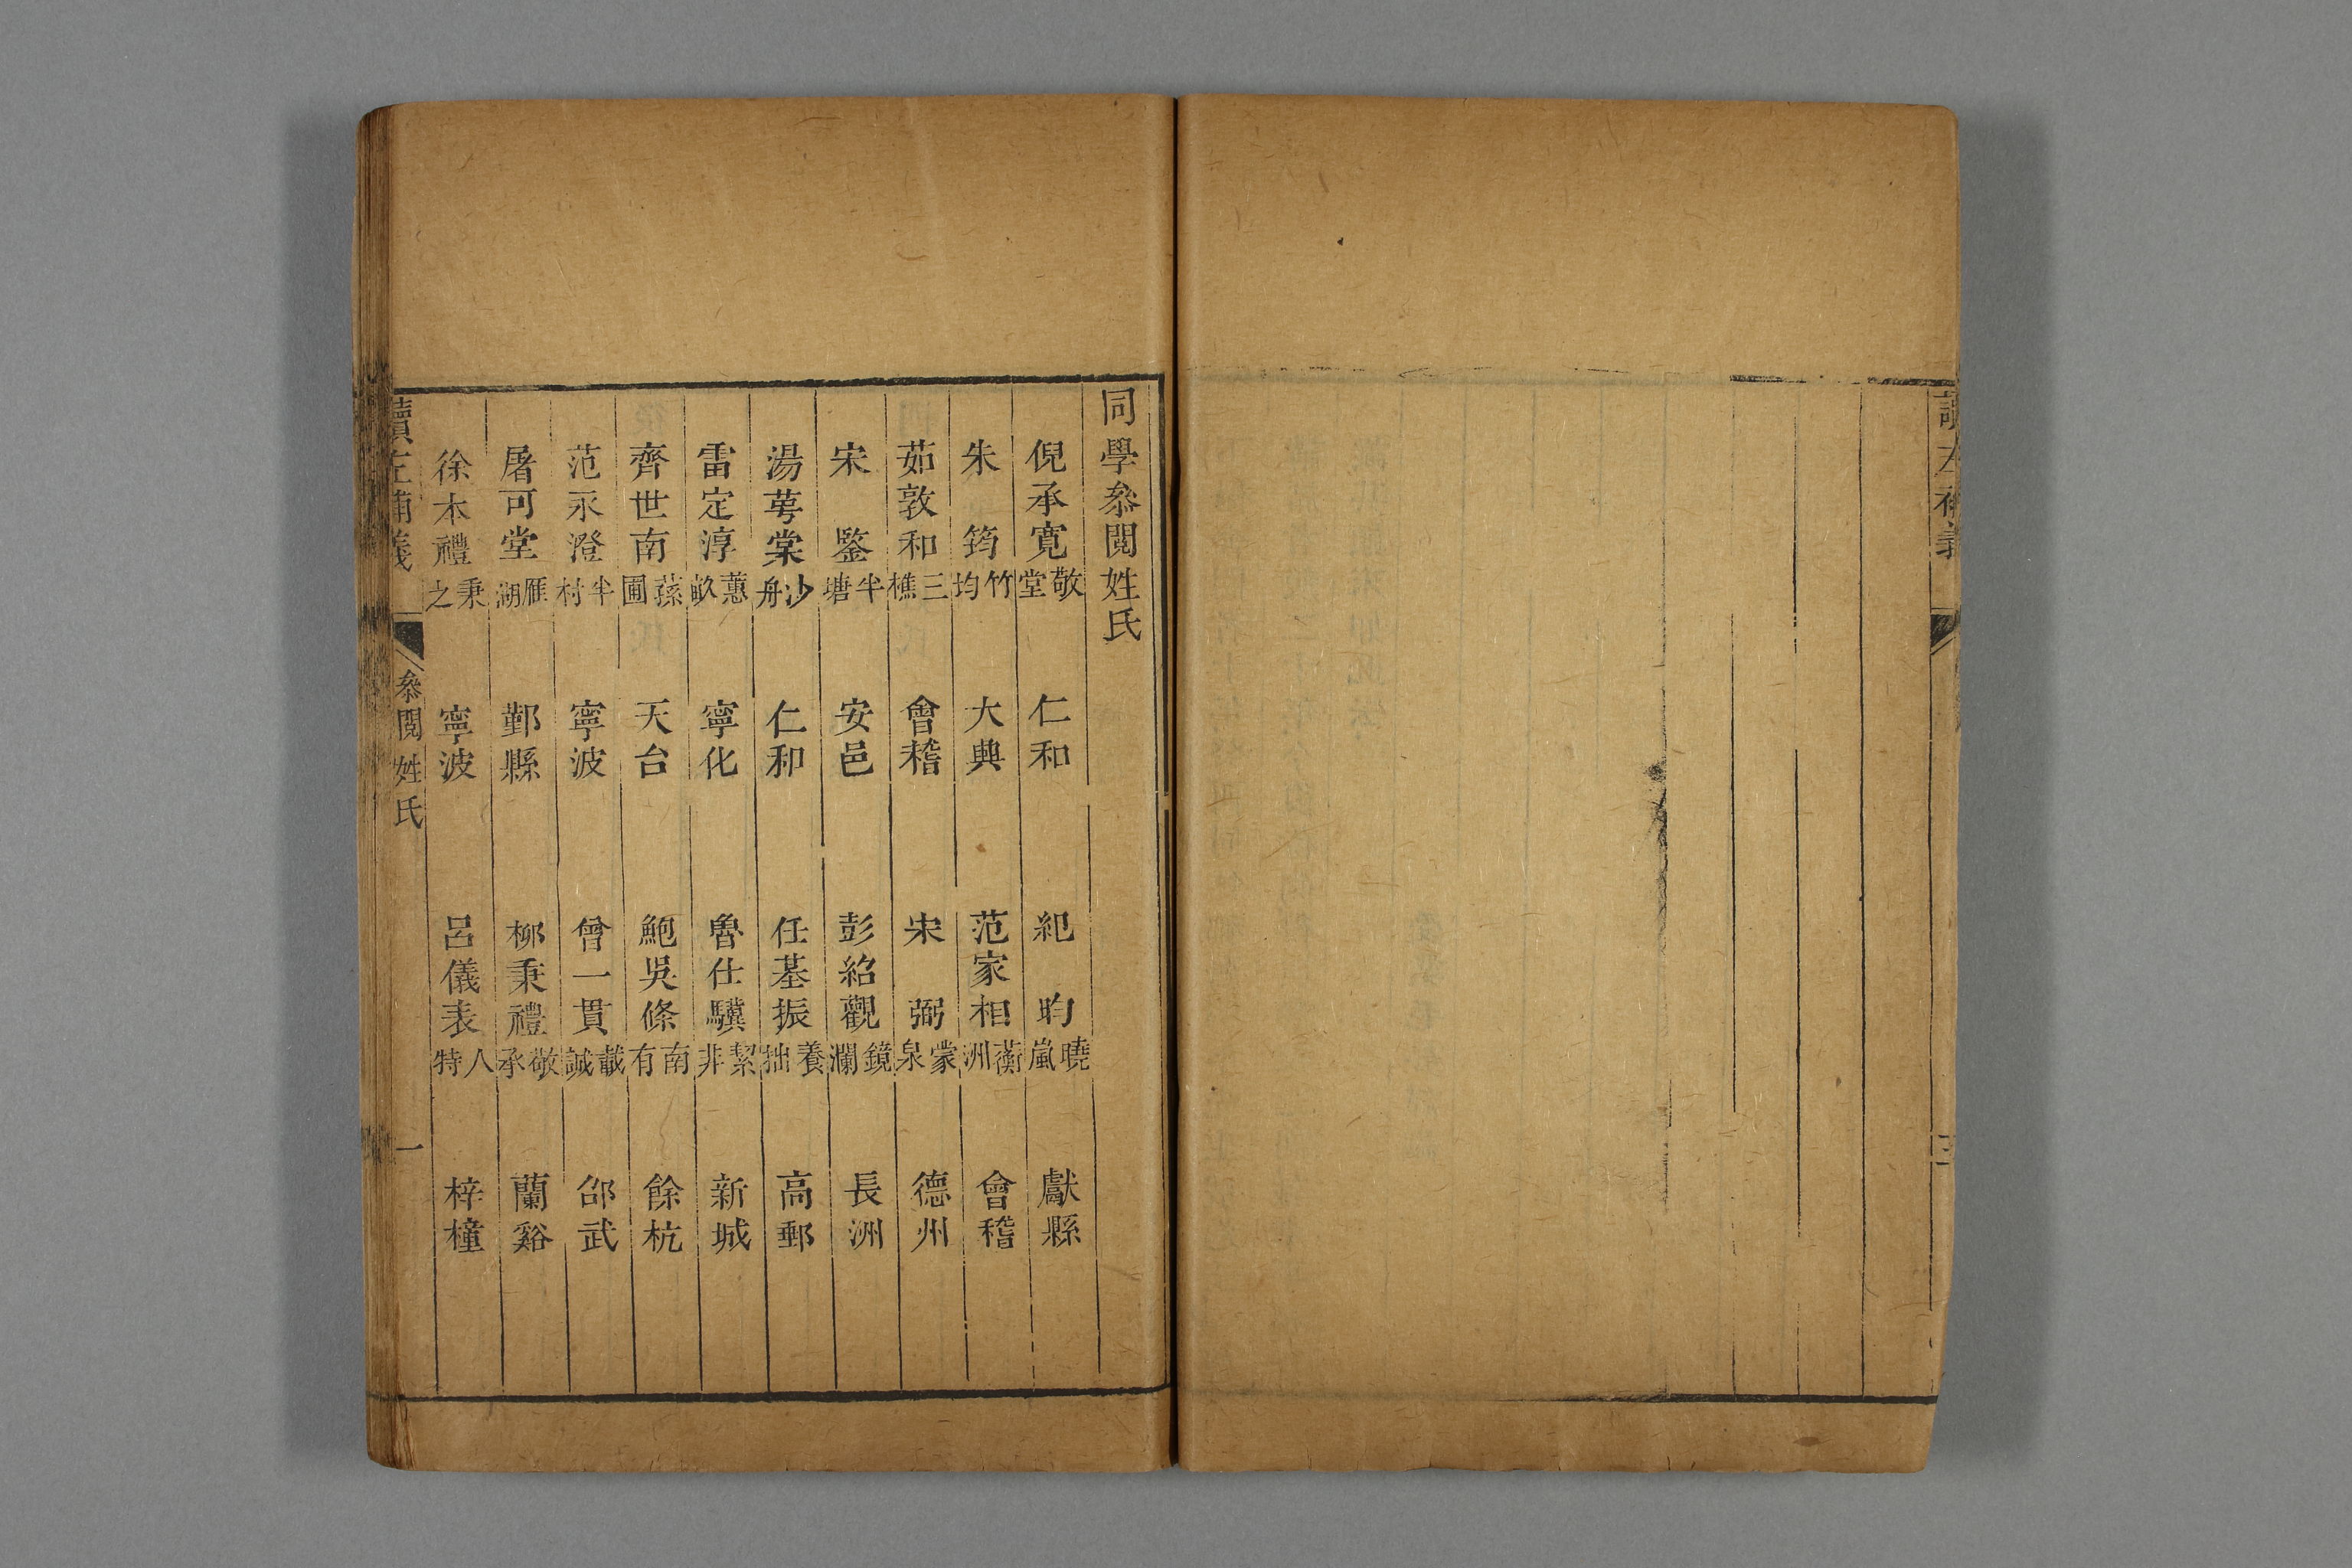 讀左補義
三
同學叅閱姓氏
倪承寬敬堂 仁和 紀昀曉嵐 獻縣
朱筠竹均 大興 范家相蘅洲 會稽
茹敦和三樵 會稽 宋弼蒙泉 德州
宋鑒半塘 安邑 彭紹觀鏡瀾 長洲
湯萼棠沙舟 仁和 任基振養拙 高郵
雷定淳蕙畝 寧化 魯仕驥絜非 新城
齊世南蓀圃 天台 鮑吳條南有 餘杭
范永澄半村 寧波 曾一貫載誠 邵武
屠可堂雁湖 鄞縣 柳秉禮敬承 蘭谿
徐本禮秉之 寧波 呂儀表八特 梓橦
讀左補義 叅閱姓氏 一